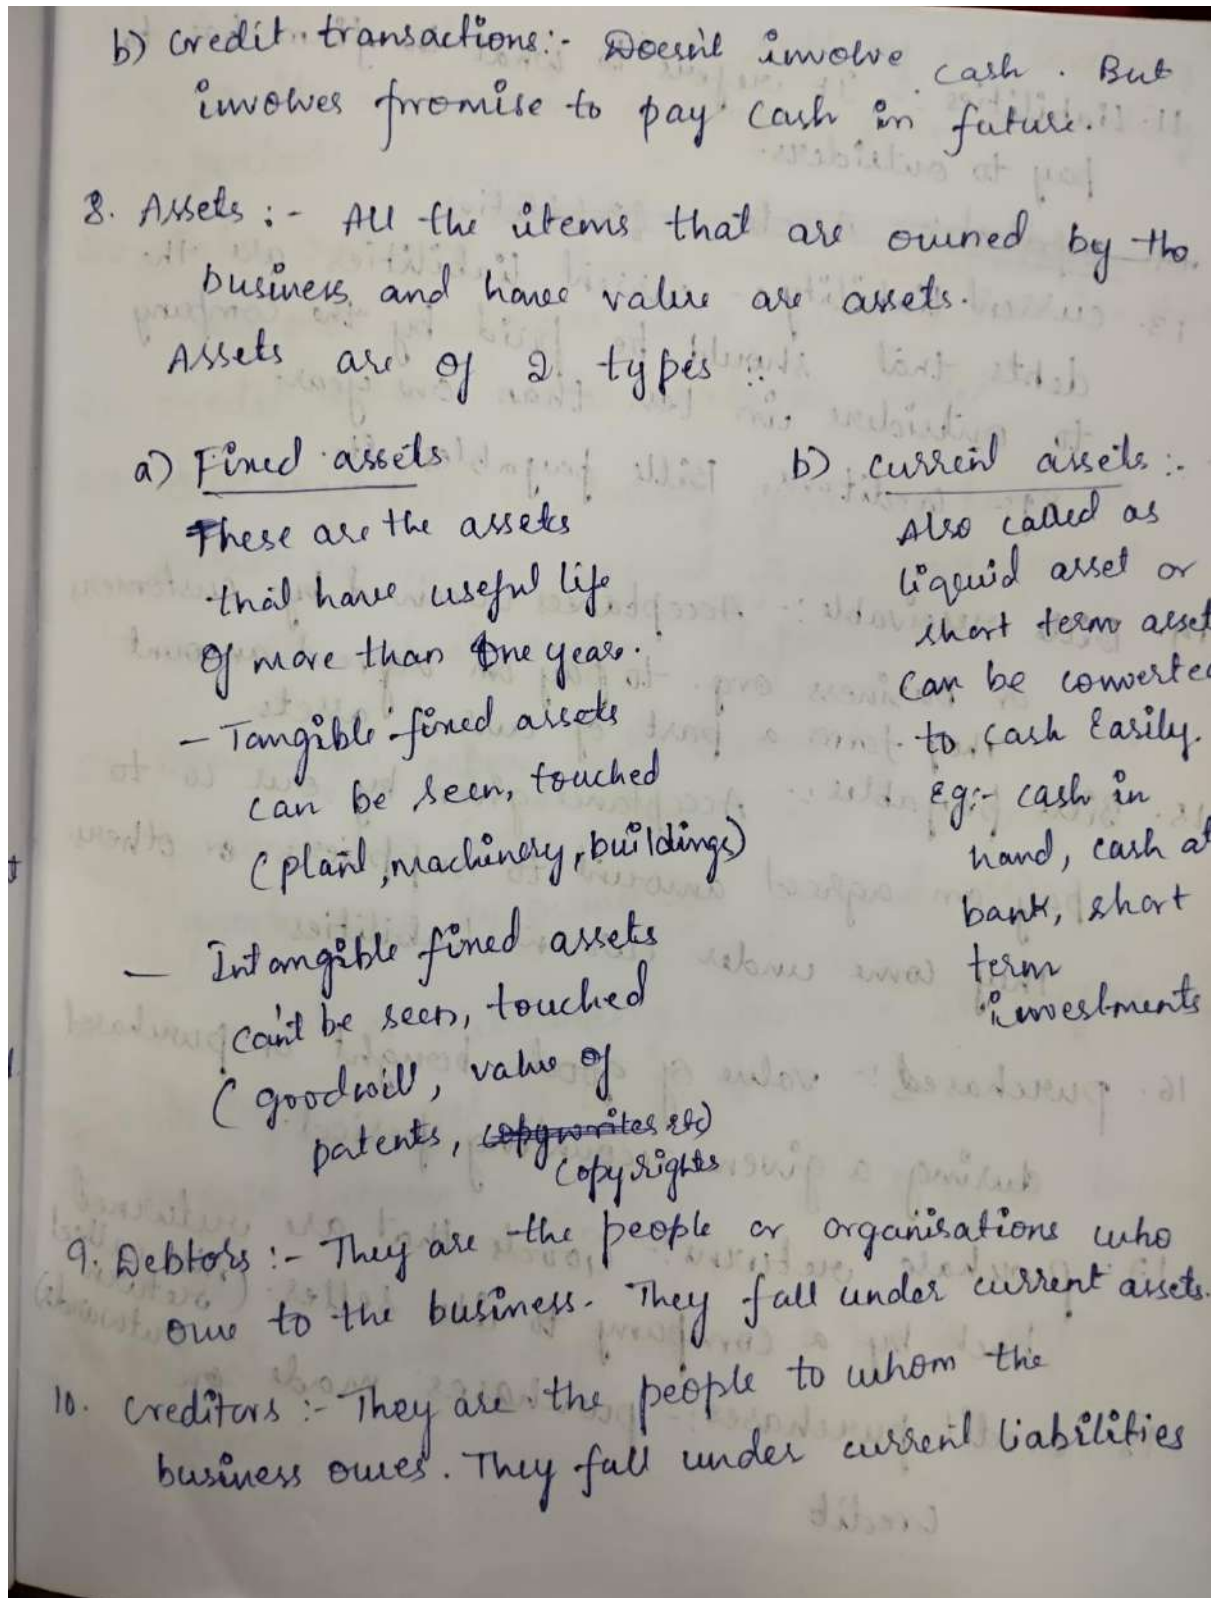 b) Credit transactions:- Doesn't involve cash. But
involves promise to pay cash in future.
8. Assets :- All the items that are owned by the
business and have value are assets.
Assets are of 2 types :-
a) Fixed assets
These are the assets
that have useful life
of more than one year.
- Tangible fixed assets
can be seen, touched
(plant, machinery, buildings)
- Intangible fixed assets
can't be seen, touched
(goodwill, value of
patents, copywrites etc)
copyrights
b) Current assets :-
Also called as
liquid asset or
short term asset
can be converted
to cash Easily.
Eg:- cash in
hand, cash at
bank, short
term
investments
9. Debtors :- They are the people or organisations who
owe to the business. They fall under current assets.
10. Creditors :- They are the people to whom the
business owes. They fall under current liabilities